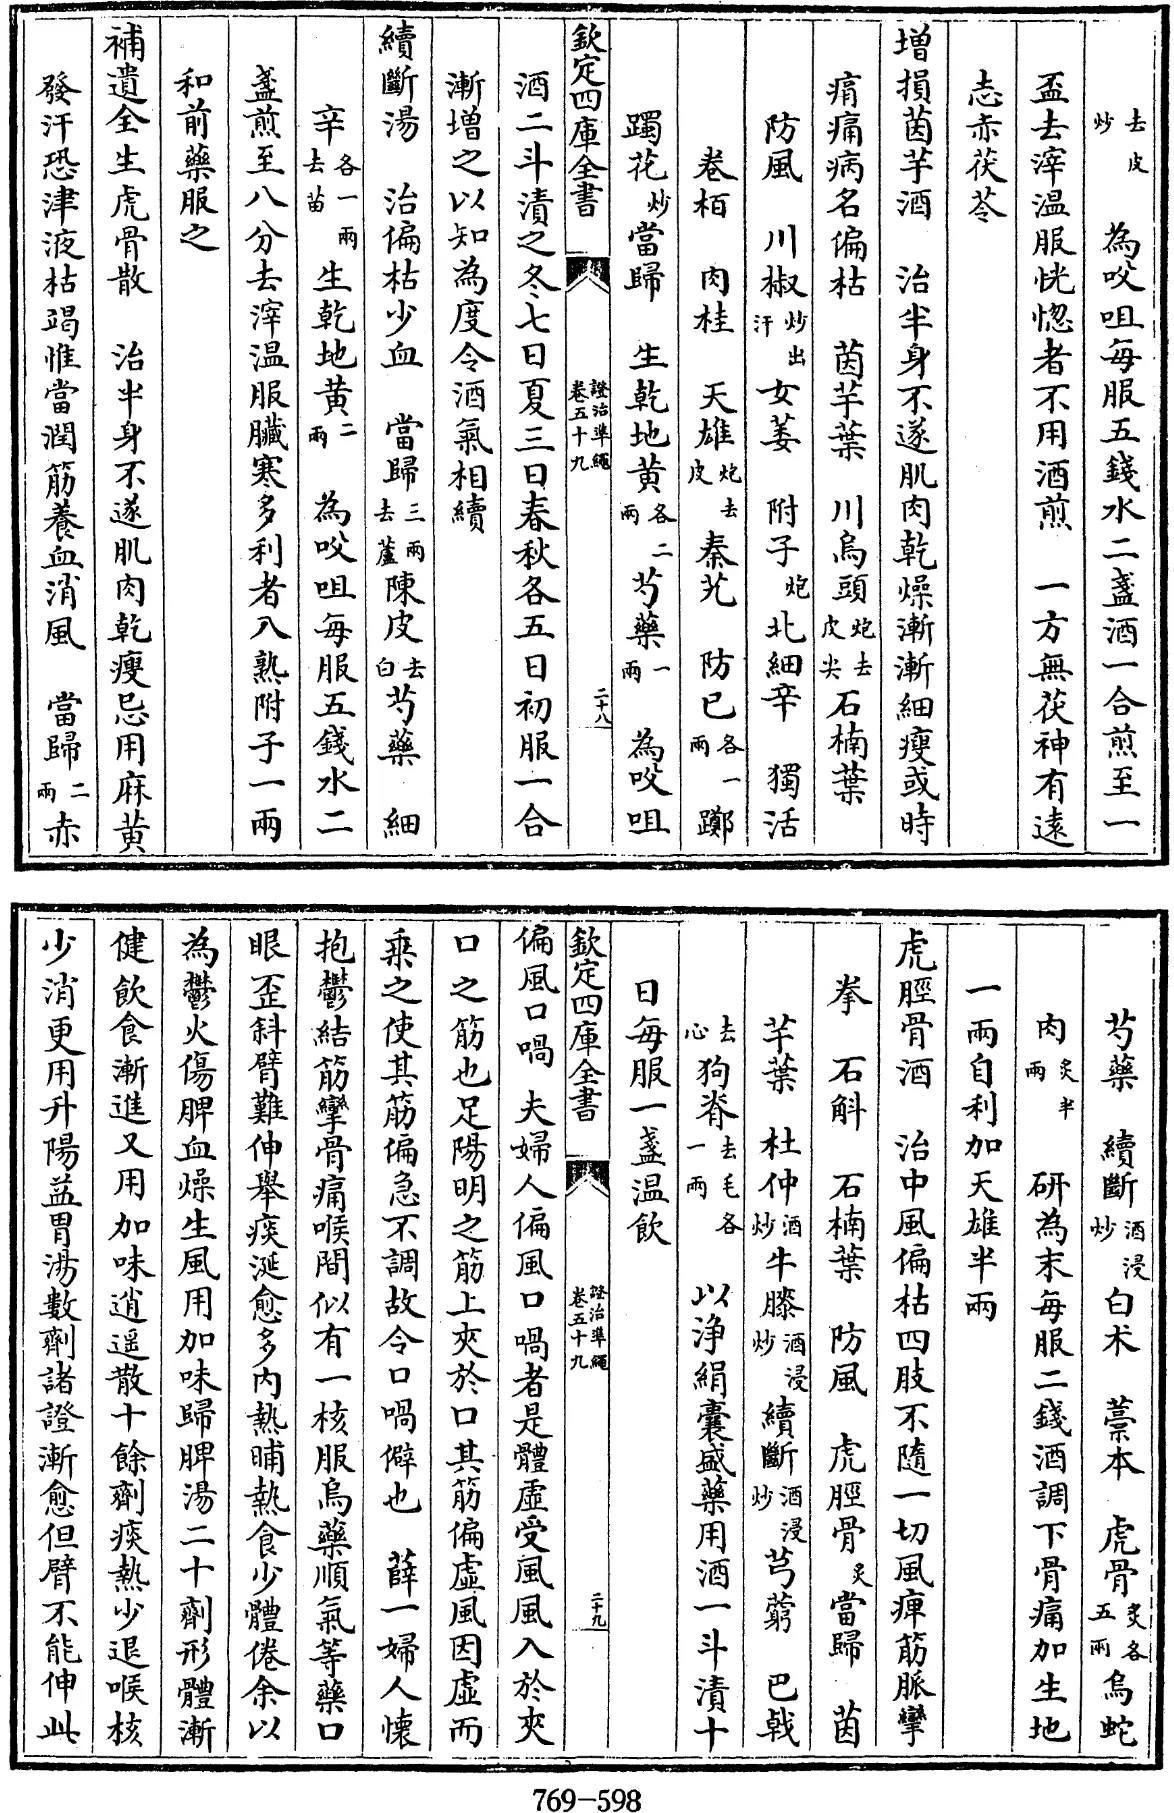 去皮炒　為㕮咀每服五錢水二盞酒一合煎至一
盃去滓温服恍惚者不用酒煎　一方無茯神有遠
志赤茯苓
增損茵芋酒　治半身不遂肌肉乾燥漸漸細瘦或時
痟痛病名偏枯　茵芋葉　川烏頭炮去皮尖石楠葉
防風　川椒炒出汗女萎　附子炮北細辛　獨活
卷栢　肉桂　天雄炮去皮秦艽　防已各一兩躑
躅花炒當歸　生乾地黄各二兩　芍藥一兩　為㕮咀
欽定四庫全書　證治準繩卷五十九　二十八
酒二斗漬之冬七日夏三日春秋各五日初服一合
漸增之以知為度令酒氣相續
續斷湯　治偏枯少血　當歸三兩去蘆陳皮去白芍藥　細
辛各一兩去苗生乾地黄二兩　為㕮咀每服五錢水二
盞煎至八分去滓温服臟寒多利者入熟附子一兩
和前藥服之
補遺全生虎骨散　治半身不遂肌肉乾瘦忌用麻黄
發汗恐津液枯竭惟當潤筋養血消風　當歸二兩赤
芍藥　續斷酒浸炒白术　藁本　虎骨炙各五兩烏蛇
肉炙半兩　研為末每服二錢酒調下骨痛加生地
一兩自利加天雄半兩
虎脛骨酒　治中風偏枯四肢不隨一切風痺筋脈攣
拳　石斛　石楠葉　防風　虎脛骨炙當歸　茵
芋葉　杜仲酒炒牛膝酒浸炒續斷酒浸炒芎藭　巴戟
去心狗脊去毛各一兩　以浄絹囊盛藥用酒一斗漬十
日每服一盞温飲
欽定四庫全書　證治準繩卷五十九　二十九
偏風口喎　夫婦人偏風口喎者是體虛受風風入於夾
口之筋也足陽明之筋上夾於口其筋偏虛風因虛而
乘之使其筋偏急不調故令口喎僻也　薛一婦人懷
抱鬱結筋攣骨痛喉間似有一核服烏藥順氣等藥口
眼歪斜臂難伸舉痰涎愈多内熱晡熱食少體倦余以
為鬱火傷脾血燥生風用加味歸脾湯二十劑形體漸
健飲食漸進又用加味逍遥散十餘劑痰熱少退喉核
少消更用升陽益胃湯數劑諸證漸愈但臂不能伸此
769-598